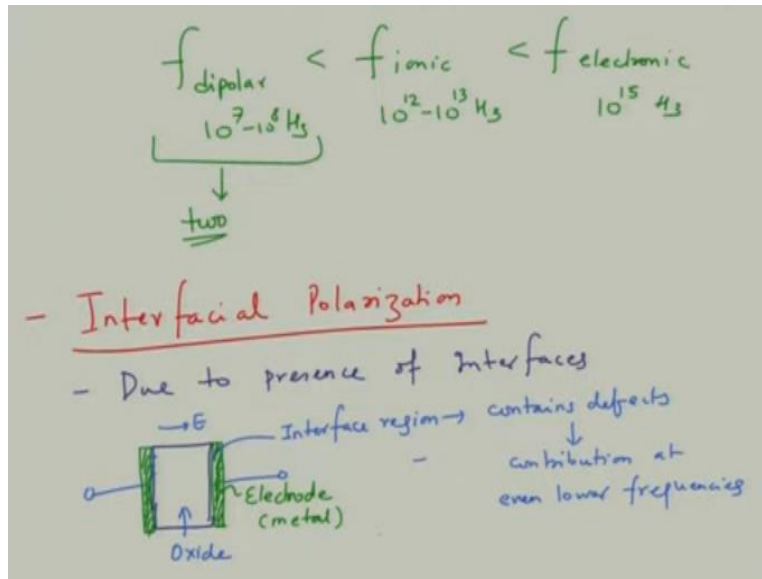 f dipolar < f ionic < f electronic
10⁷-10⁸ Hz 10¹²-10¹³ Hz 10¹⁵ Hz
↓
two
- Interfacial Polarization
- Due to presence of Interfaces
→ E
Interface region → contains defects
↓
-
contribution at
even lower frequencies
Electrode
(metal)
Oxide